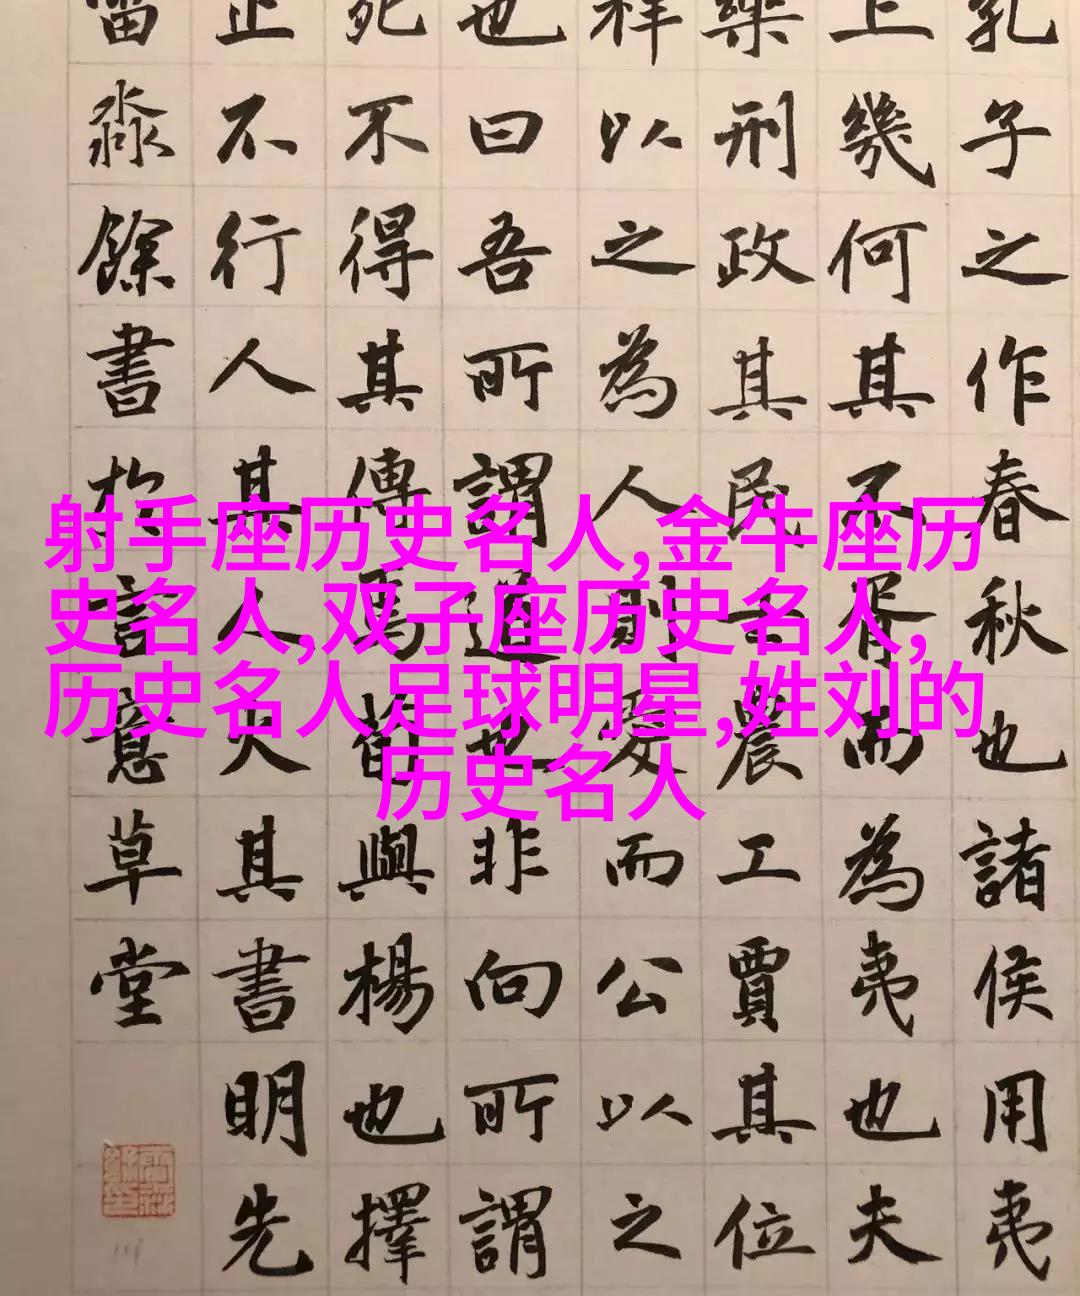 射手座历史名人,金牛座历
史名人,双子座历史名人,
历史名人足球明星,姓刘的
历史名人
孔子之作春秋也諸侯用夷
上幾何其不胥而為夷也夫
樂刑政其民士農工賈其位
祥以之為人則愛而公以之
也曰吾所謂道也非向所謂
死不得其傳焉荀與楊也擇
止不行人其人火其書明先
淼餘書於詩意草堂